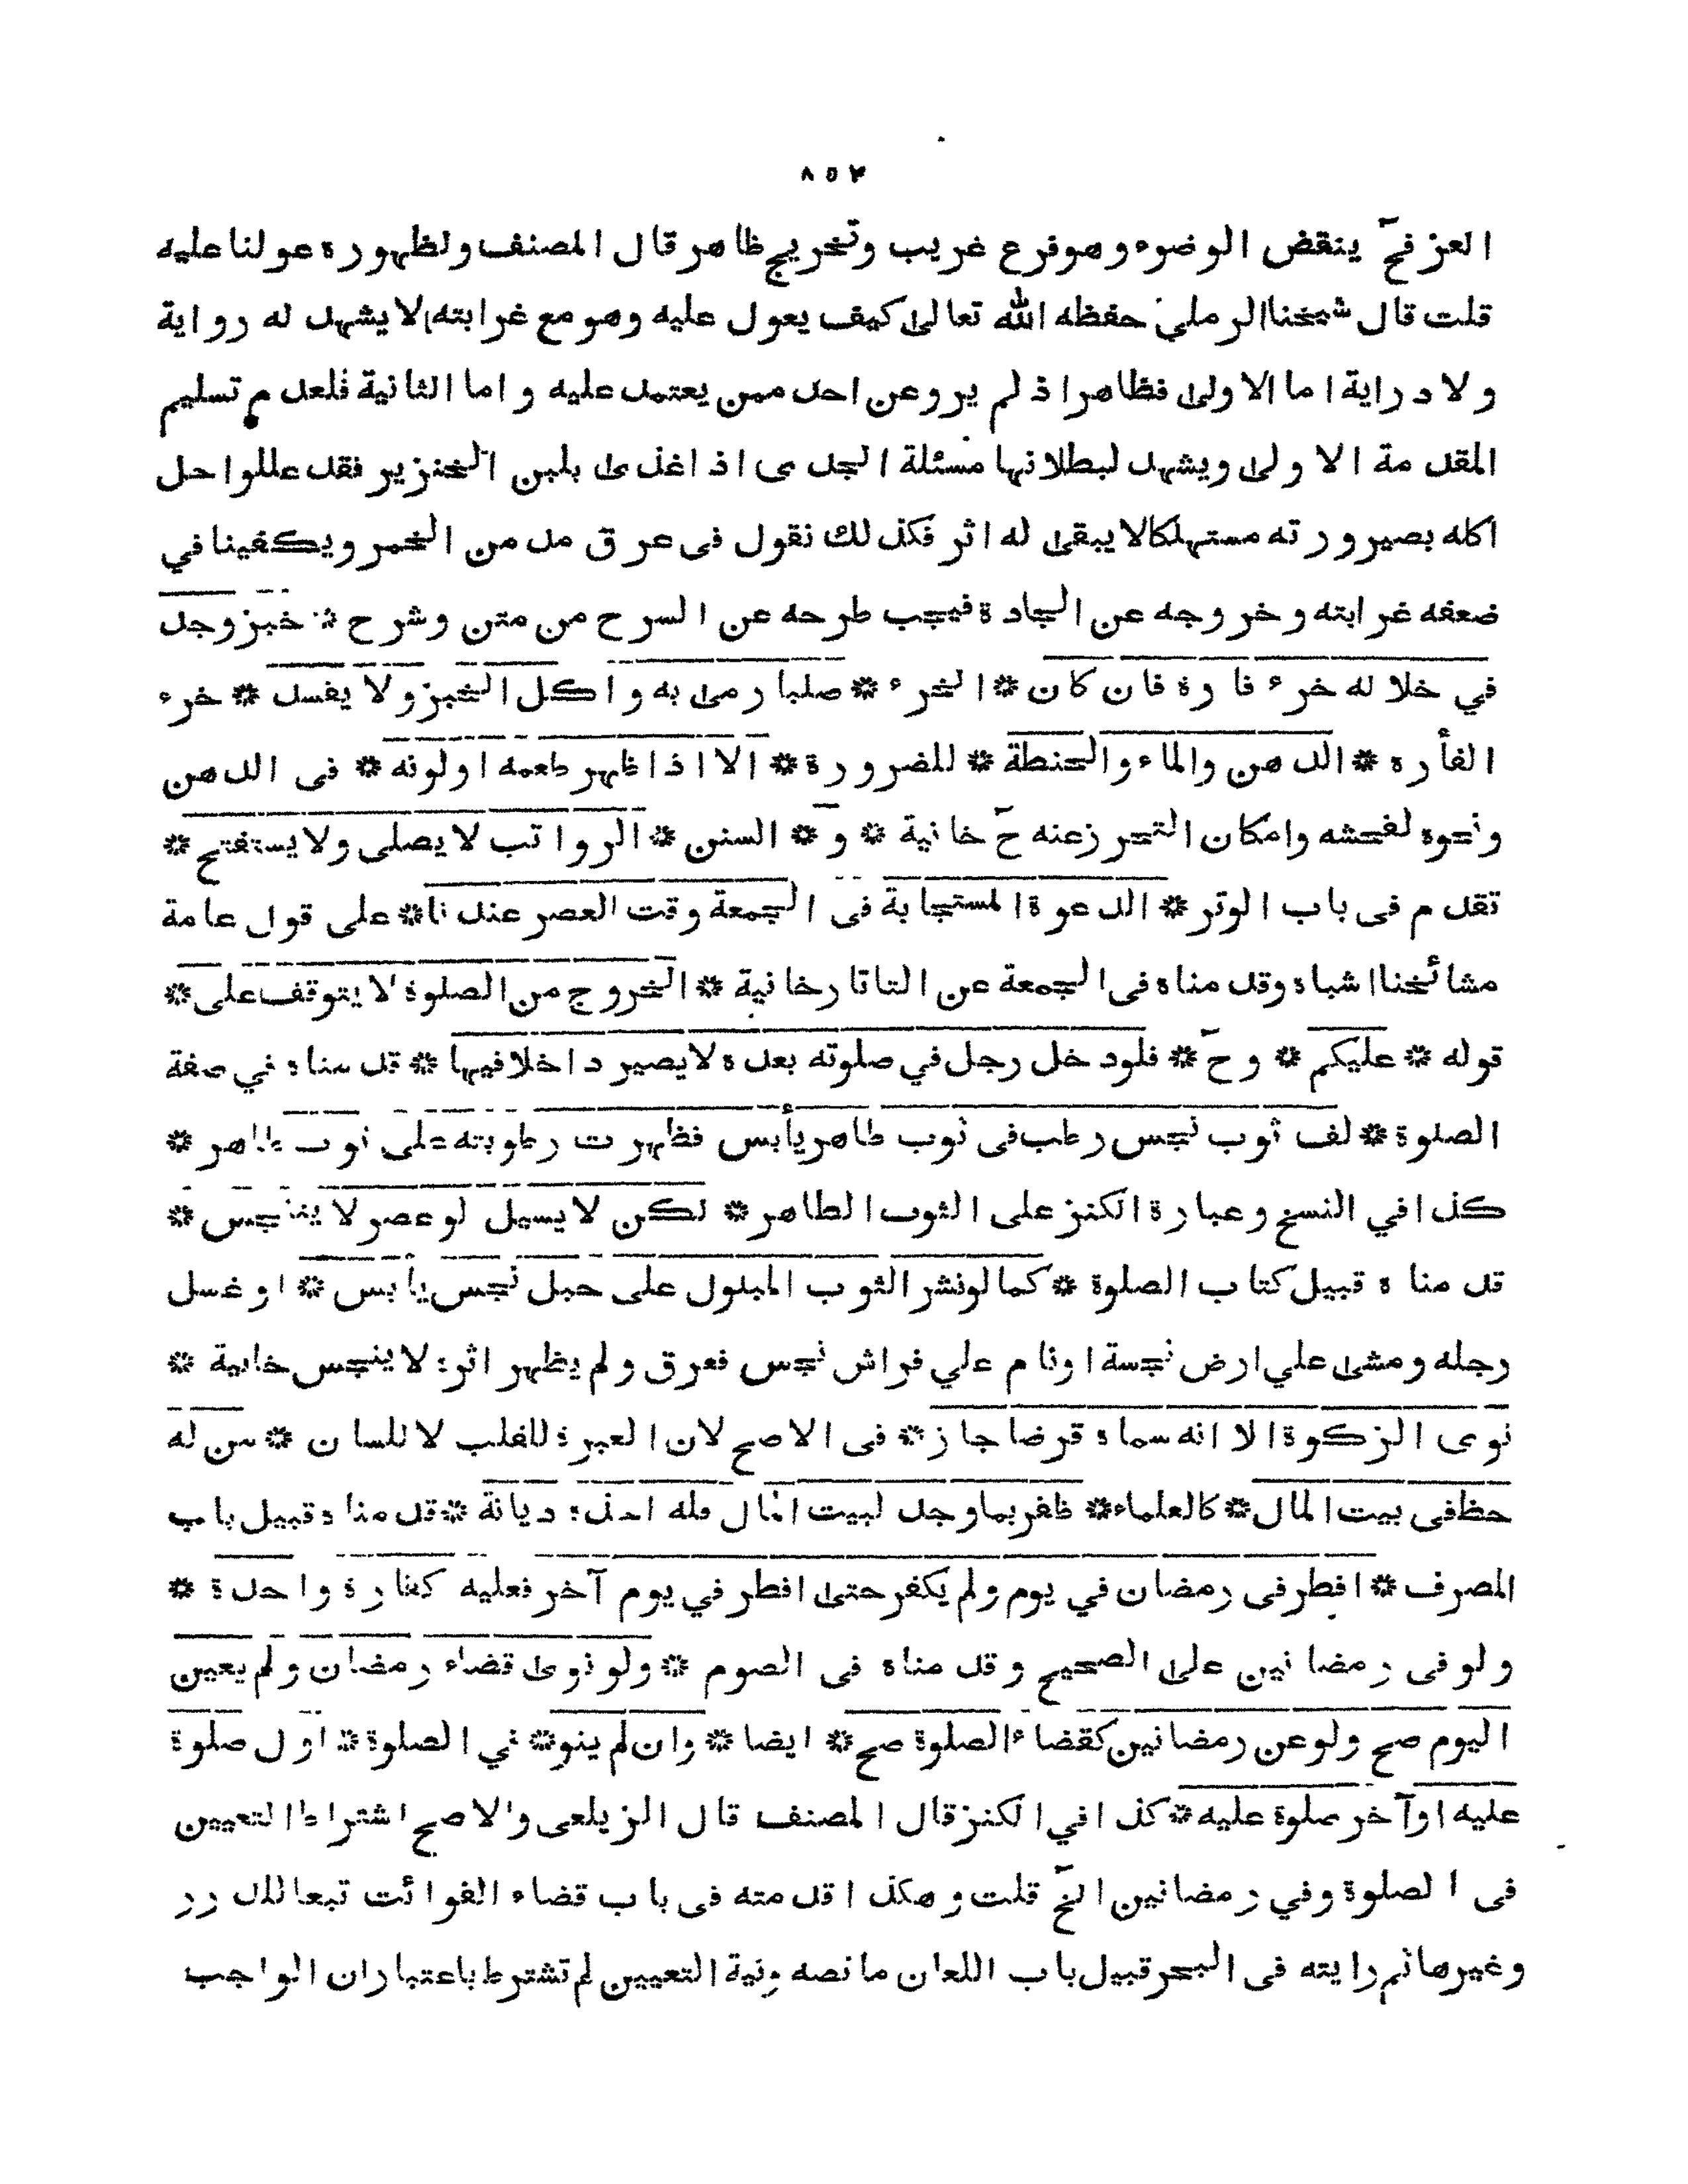 ٨٥٤
العز فحٓ ينقض الوضوء وهو فرع غريب وتخريج ظاهر قال المصنف ولظهوره عولنا عليه
قلت قال شيخنا الرملي حفظه الله تعالى كيف يعول عليه وهو مع غرابته لا يشهد له رواية
ولا دراية اما الاولى فظاهر اذ لم يرو عن احد ممن يعتمد عليه واما الثانية فلعدم تسليم
المقدمة الاولى ويشهد لبطلانها مسئلة الجدى اذا غذى بلبن الخنزير فقد عللوا حل
اكله بصيرورته مستهلكا لا يبقى له اثر فكذلك نقول فى عرق مدمن الخمر ويكفينا في
ضعفه غرابته وخروجه عن الجادة فيجب طرحه عن السرح من متن وشرح * خبز وجد
في خلاله خرء فارة فان كان * الخرء * صلبا رمى به واكل الخبز ولا يفسد * خرء
الفأرة * الدهن والماء والحنطة * للضرورة * الا اذا ظهر طعمه اولونه * فى الدهن
ونحوه لفحشه وامكان التحرز عنه حٓ خانية * و * السنن * الرواتب لا يصلى ولا يستفتح *
تقدم فى باب الوتر * الدعوة المستجابة فى الجمعة وقت العصر عندنا * على قول عامة
مشائخنا اشباه وقدمناه فى الجمعة عن التاتارخانية * الخروج من الصلوة لا يتوقف على *
قوله * عليكم * وحٓ * فلودخل رجل في صلوته بعده لا يصير داخلا فيها * قدمناه في صفة
الصلوة * لف ثوب نجس رطب فى ثوب طاهر يأبس فظهرت رطوبته على ثوب طاهر *
كذا في النسخ وعبارة الكنز على الثوب الطاهر * لكن لا يسيل لو عصر لا يتنجس *
قدمناه قبيل كتاب الصلوة * كما لو نشر الثوب المبلول على حبل نجس يأبس * او غسل
رجله ومشى علي ارض نجسة اونام علي فراش نجس فعرق ولم يظهر اثره لا ينجس خانية *
نوى الزكوة الا انه سماه قرضا جاز * فى الاصح لان العبرة للقلب لا للسان * من له
حظ فى بيت المال * كالعلماء * ظفر بما وجد لبيت المال فله اخذه ديانة * قدمناه قبيل باب
المصرف * افطر فى رمضان في يوم ولم يكفر حتى افطر في يوم آخر فعليه كفارة واحدة *
ولو فى رمضانين على الصحيح وقدمناه فى الصوم * ولو نوى قضاء رمضان ولم يعين
اليوم صح ولو عن رمضانين كقضاء الصلوة صح * ايضا * وان لم ينو * في الصلوة * اول صلوة
عليه اوآخر صلوة عليه * كذا في الكنز قال المصنف قال الزيلعى والاصح اشتراط التعيين
فى الصلوة وفي رمضانين الخٓ قلت وهكذا قدمته فى باب قضاء الفوائت تبعا للدرر
وغيرها ثم رايته فى البحر قبيل باب اللعان ما نصه ونية التعيين لم تشترط باعتبار ان الواجب